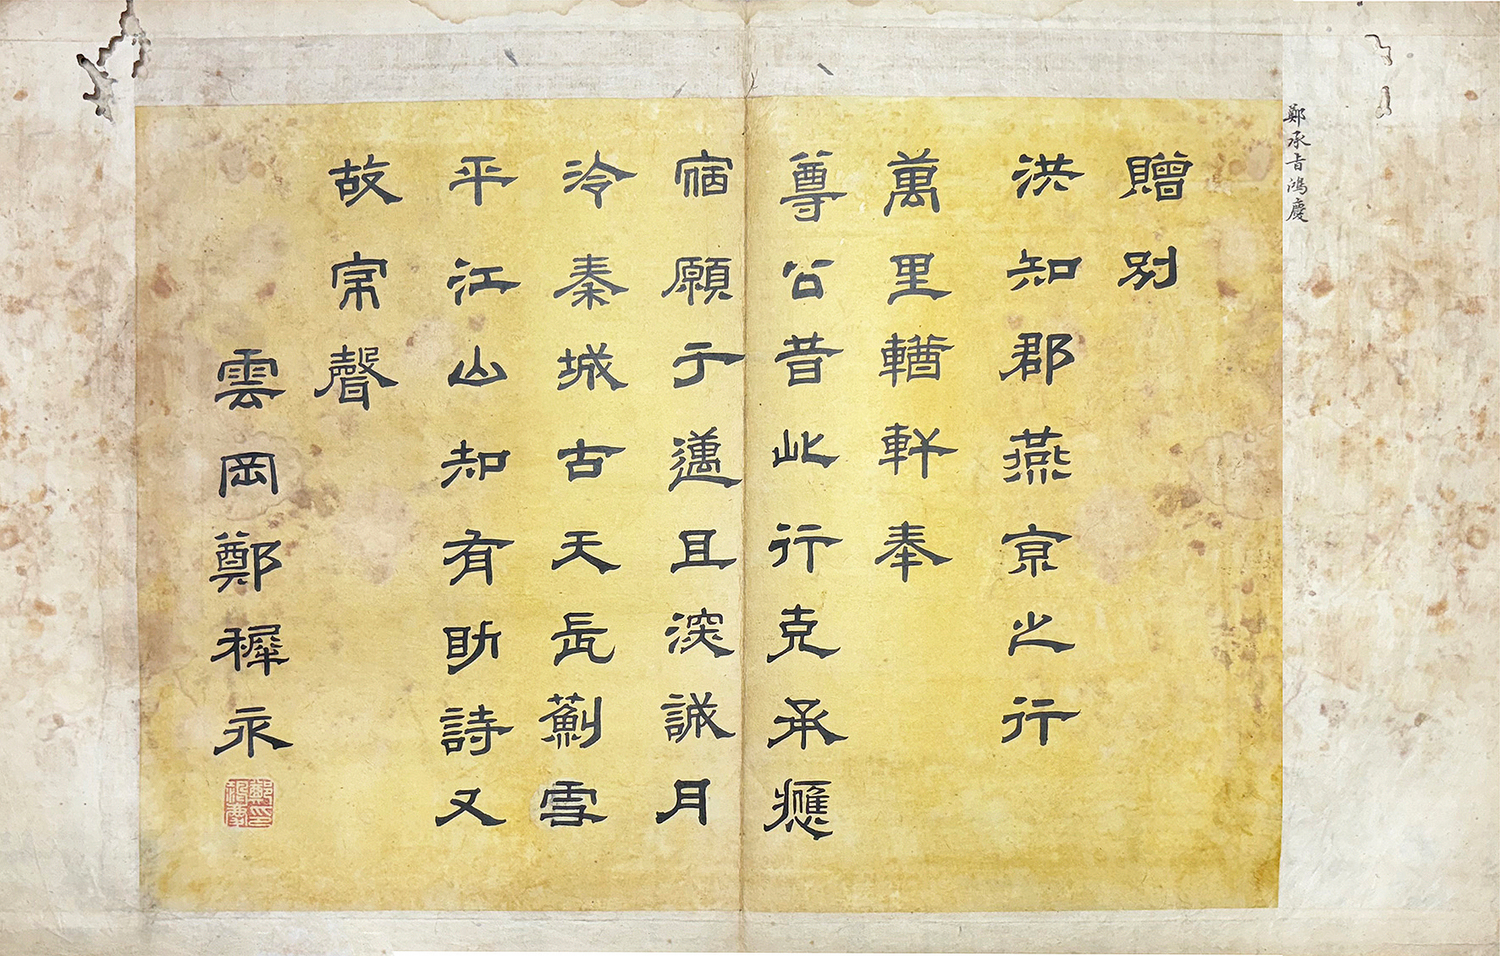 鄭承旨鴻慶
贈別
洪知郡燕京之行
萬里輶軒奉
尊公昔此行克承應
宿願于邁且深誠月
冷秦城古天長薊雪
平江山知有助詩又
故家聲
雲岡鄭稺永
鄭印鴻慶